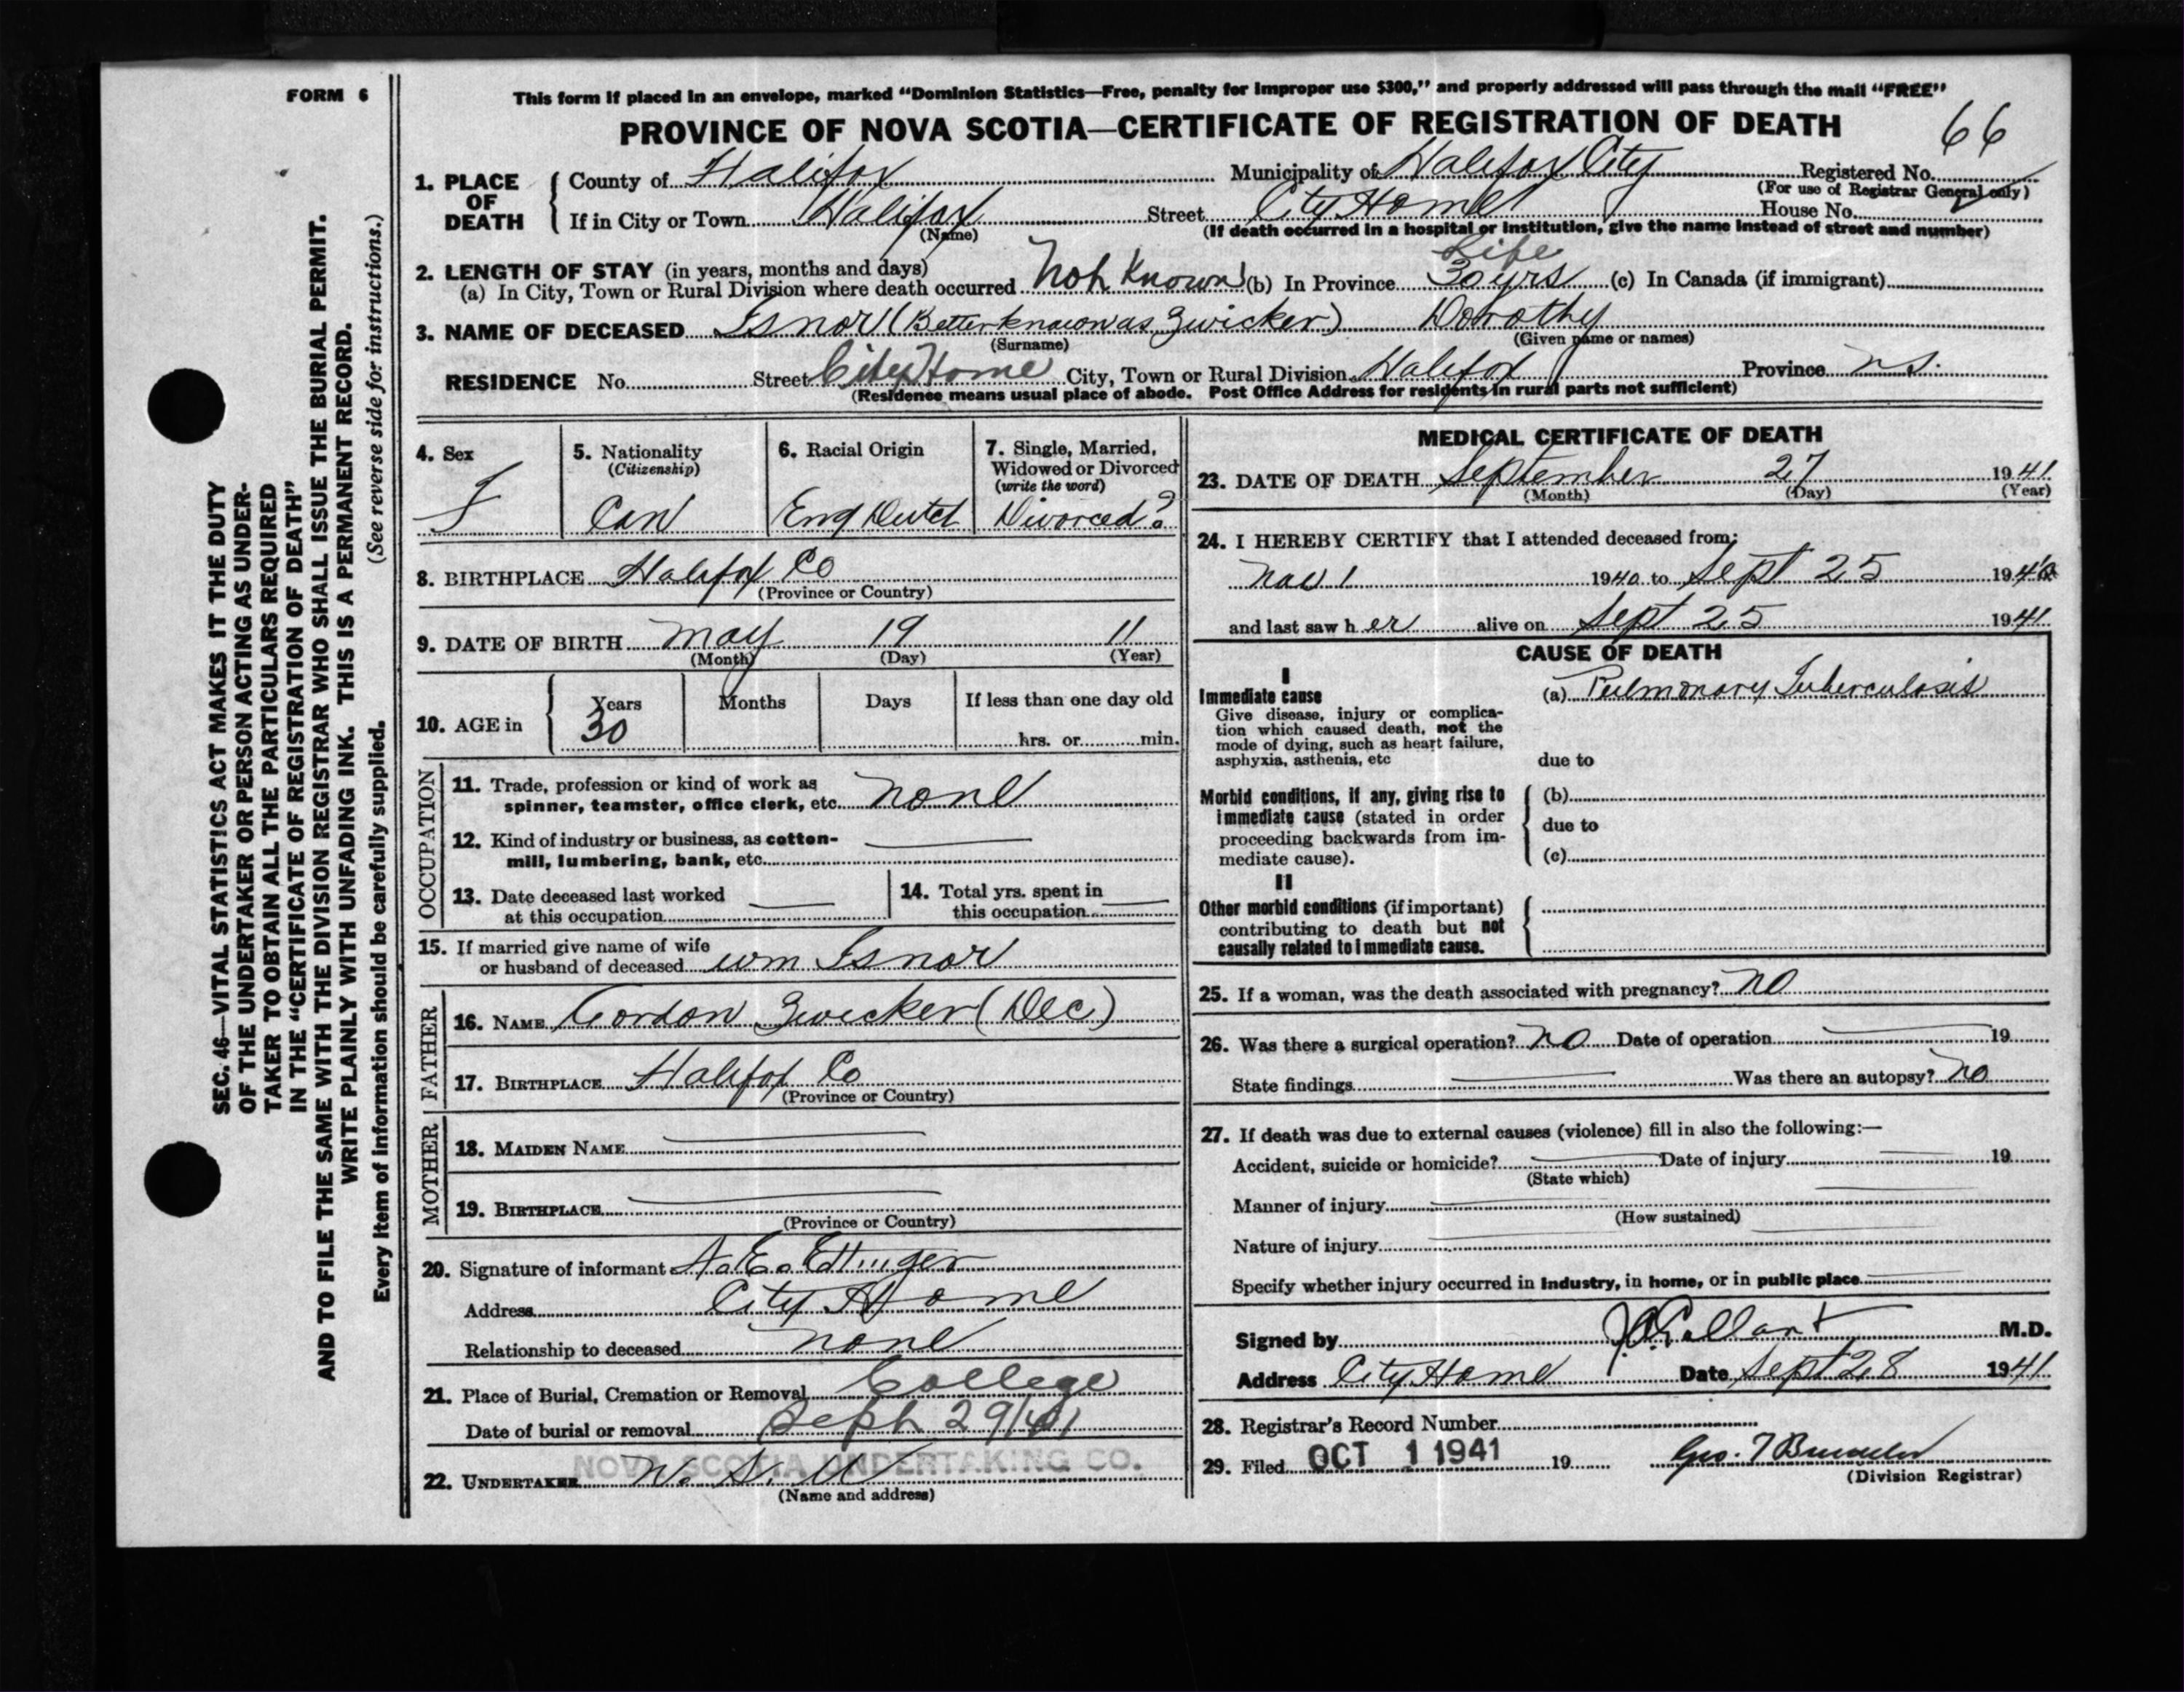 FORM 6
This form if placed in an envelope, marked “Dominion Statistics—Free, penalty for improper use $300,” and properly addressed will pass through the mail “FREE”
PROVINCE OF NOVA SCOTIA—CERTIFICATE OF REGISTRATION OF DEATH
66
1. PLACE OF DEATH
County of Halifax Municipality of Halifax City Registered No.
(For use of Registrar General only)
If in City or Town Halifax Street City Home House No.
(Name) (If death occurred in a hospital or institution, give the name instead of street and number)
2. LENGTH OF STAY (in years, months and days) Life
(a) In City, Town or Rural Division where death occurred Not Known (b) In Province 30 yrs (c) In Canada (if immigrant)
3. NAME OF DECEASED Isnor (Better known as Zwicker) Dorothy
(Surname) (Given name or names)
RESIDENCE No. Street City Home City, Town or Rural Division Halifax Province N.S.
(Residence means usual place of abode. Post Office Address for residents in rural parts not sufficient)
4. Sex
F
5. Nationality
(Citizenship)
Can
6. Racial Origin
Eng Dutch
7. Single, Married,
Widowed or Divorced
(write the word)
Divorced?
8. BIRTHPLACE Halifax Co
(Province or Country)
9. DATE OF BIRTH May 19 11
(Month) (Day) (Year)
10. AGE in
Years Months Days If less than one day old
30
hrs. or min.
OCCUPATION
11. Trade, profession or kind of work as
spinner, teamster, office clerk, etc. none
12. Kind of industry or business, as cotton-
mill, lumbering, bank, etc.
13. Date deceased last worked
at this occupation
14. Total yrs. spent in
this occupation
15. If married give name of wife
or husband of deceased Wm Isnor
FATHER
16. NAME Gordon Zwicker (Dec)
17. BIRTHPLACE Halifax Co
(Province or Country)
MOTHER
18. MAIDEN NAME
19. BIRTHPLACE
(Province or Country)
20. Signature of informant A. E. Ettinger
Address City Home
Relationship to deceased none
21. Place of Burial, Cremation or Removal College
Date of burial or removal Sept 29/41
NOVA SCOTIA UNDERTAKING CO.
22. UNDERTAKER N. S. U
(Name and address)
MEDICAL CERTIFICATE OF DEATH
23. DATE OF DEATH September 27 1941
(Month) (Day) (Year)
24. I HEREBY CERTIFY that I attended deceased from:
Nov 1 1940 to Sept 25 194
and last saw her alive on Sept 25 1941
CAUSE OF DEATH
I
Immediate cause
Give disease, injury or complica-
tion which caused death, not the
mode of dying, such as heart failure,
asphyxia, asthenia, etc
(a) Pulmonary Tuberculosis
due to
Morbid conditions, if any, giving rise to
immediate cause (stated in order
proceeding backwards from im-
mediate cause).
(b)
due to
(c)
II
Other morbid conditions (if important)
contributing to death but not
causally related to immediate cause.
25. If a woman, was the death associated with pregnancy? no
26. Was there a surgical operation? no Date of operation 19
State findings Was there an autopsy? no
27. If death was due to external causes (violence) fill in also the following:—
Accident, suicide or homicide? Date of injury 19
(State which)
Manner of injury
(How sustained)
Nature of injury
Specify whether injury occurred in industry, in home, or in public place
Signed by J.A. Gallant M.D.
Address City Home Date Sept 28 1941
28. Registrar's Record Number
29. Filed OCT 1 1941 19 Geo. T
(Division Registrar)
SEC. 46—VITAL STATISTICS ACT MAKES IT THE DUTY
OF THE UNDERTAKER OR PERSON ACTING AS UNDER-
TAKER TO OBTAIN ALL THE PARTICULARS REQUIRED
IN THE “CERTIFICATE OF REGISTRATION OF DEATH”
AND TO FILE THE SAME WITH THE DIVISION REGISTRAR WHO SHALL ISSUE THE BURIAL PERMIT.
WRITE PLAINLY WITH UNFADING INK. THIS IS A PERMANENT RECORD.
(See reverse side for instructions.)
Every item of information should be carefully supplied.